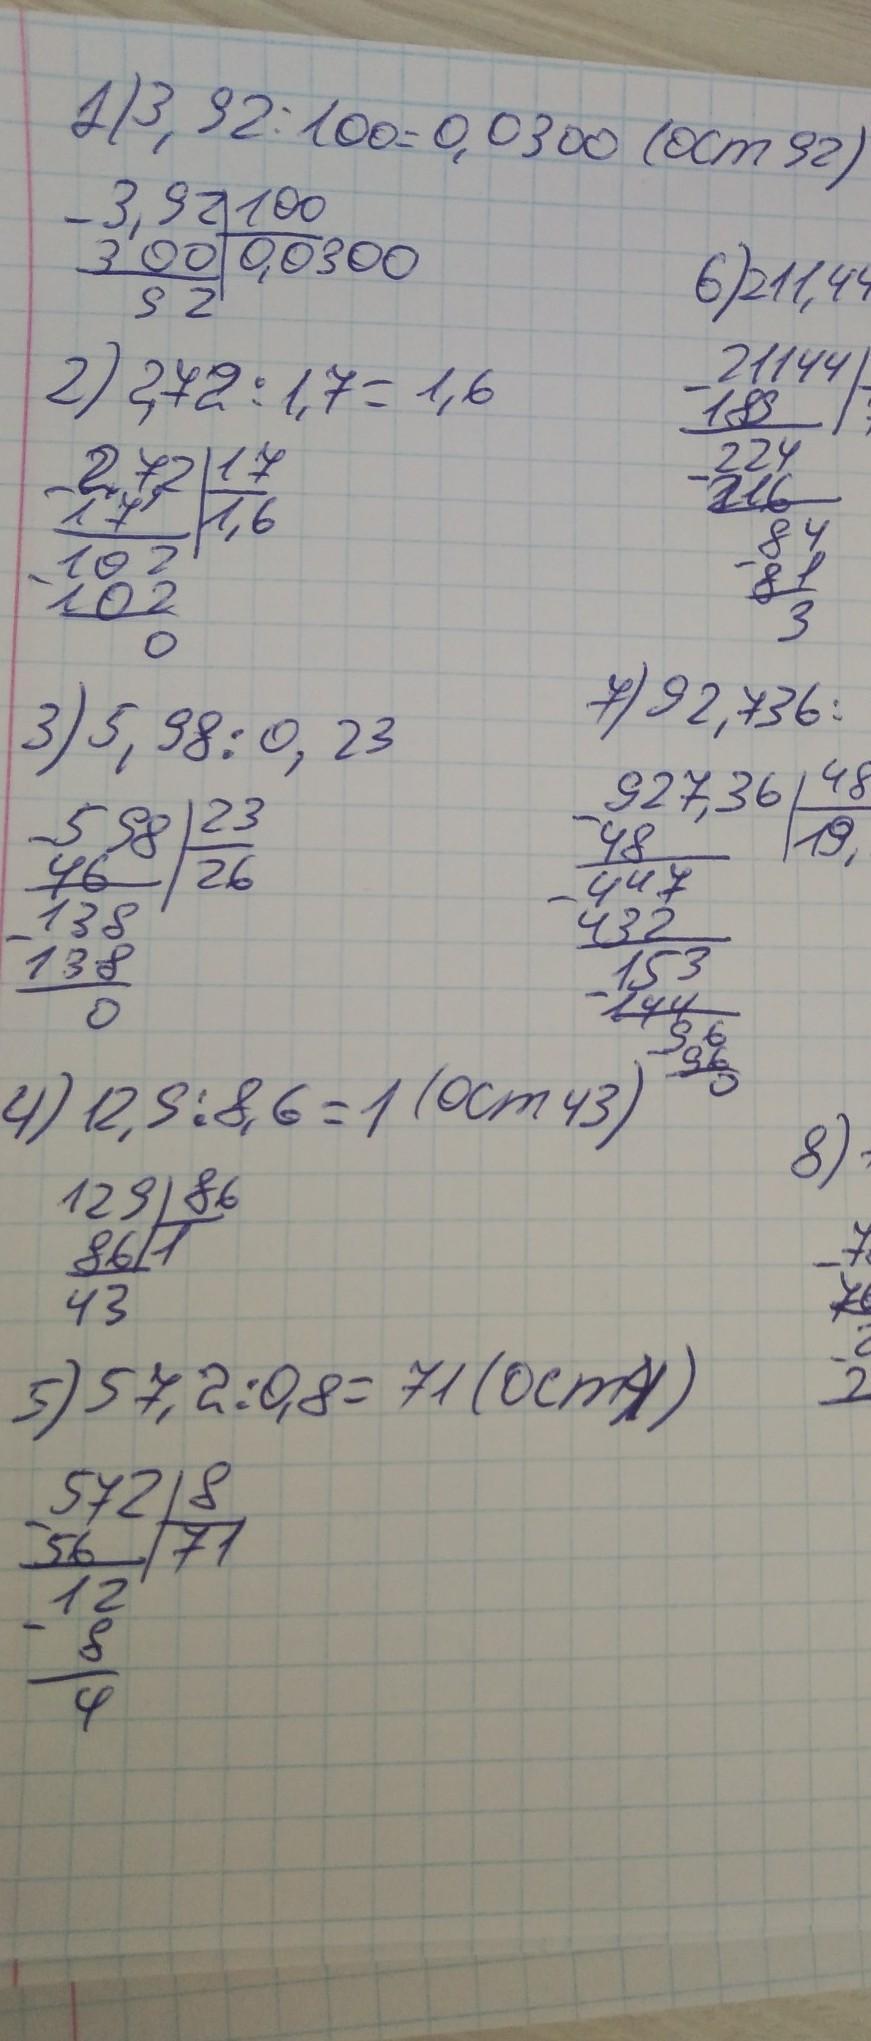 1) 3,92:100=0,0300 (ост 92)
-3,92 100
300 0,0300
92
2) 2,72:1,7=1,6
-2,72 17
17 1,6
-102
102
0
3) 5,98:0,23
-598 23
46 26
-138
138
0
4) 12,9:8,6=1 (ост 43)
129 86
86 1
43
5) 57,2:0,8=71 (ост
-572 8
56 71
-12
8
4
6) 211,44
-21144
189
-224
216
-84
81
3
7) 92,736:
-927,36 48
48 19,
-447
432
-153
-144
96
96
0
8)